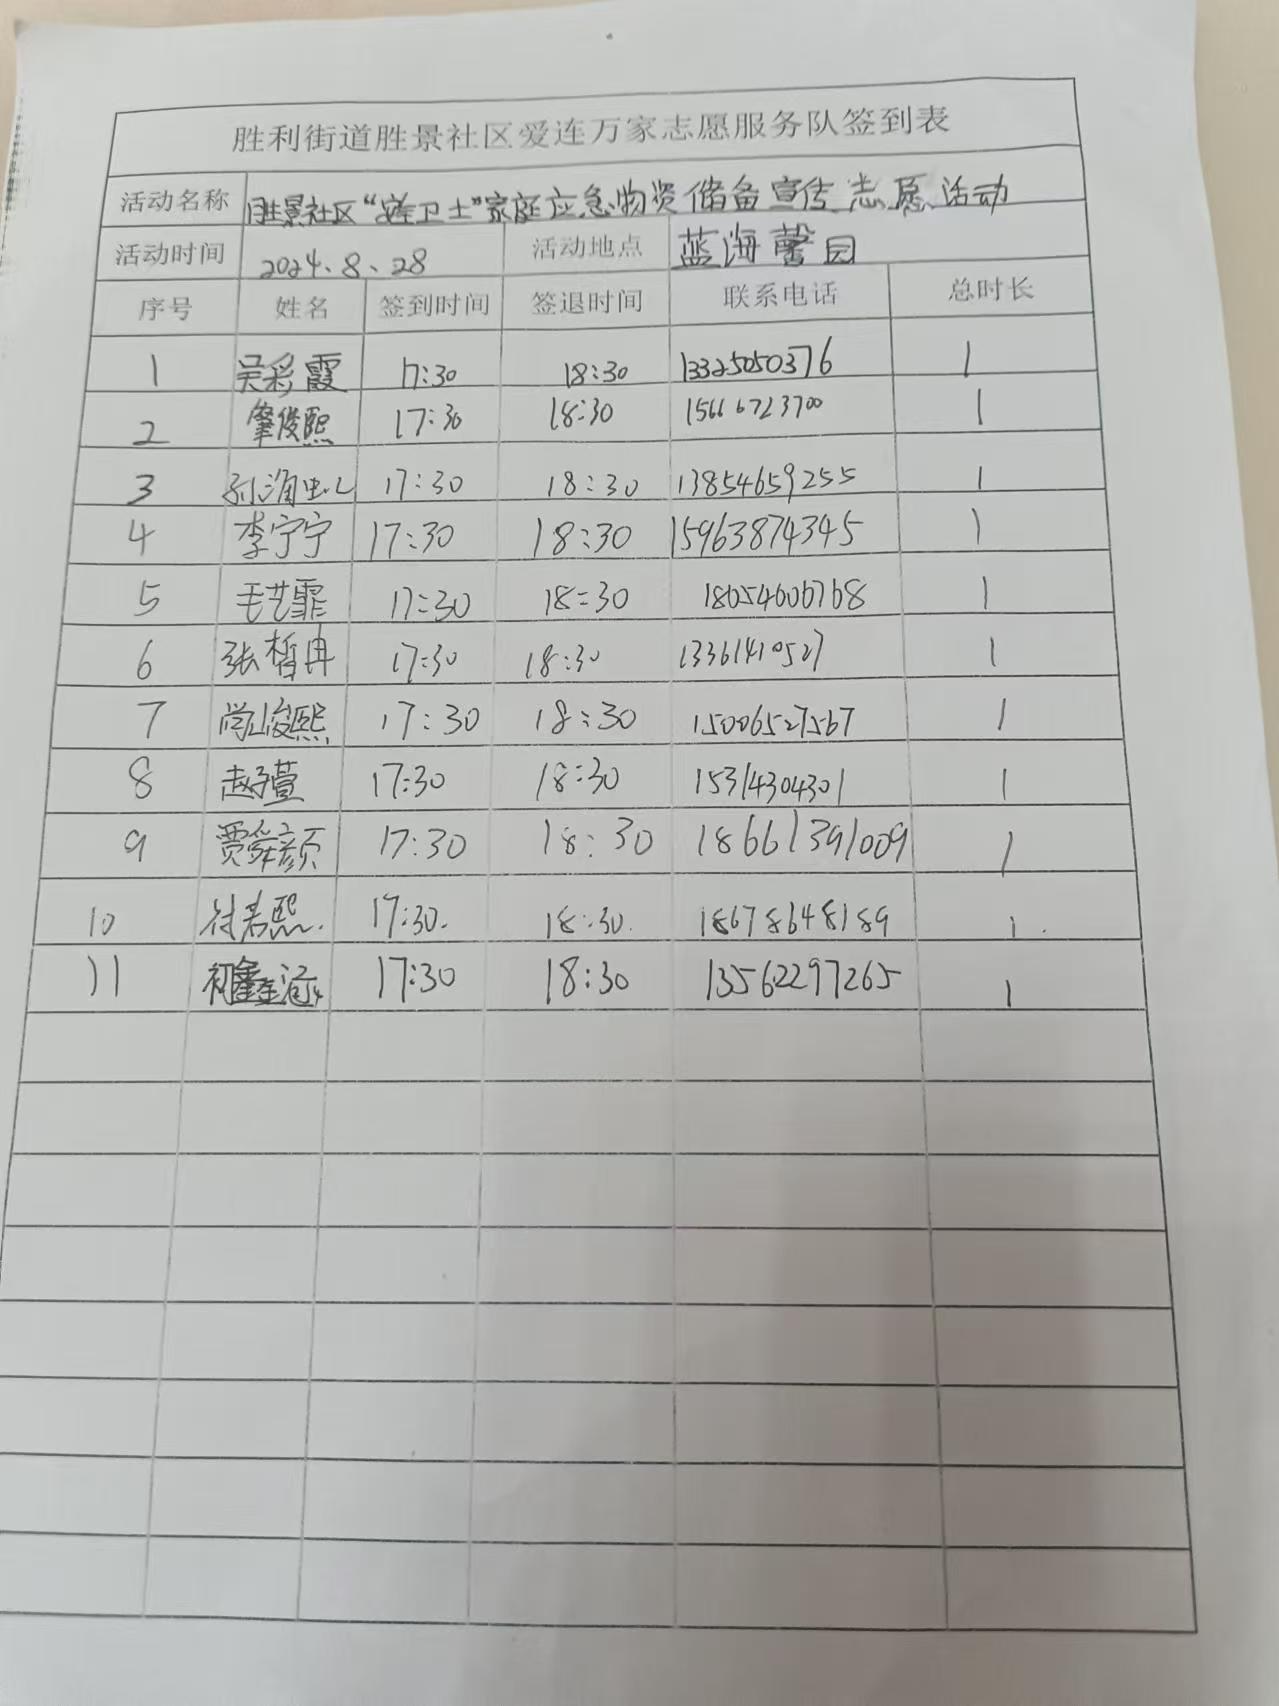 胜利街道胜景社区爱连万家志愿服务队签到表
活动名称 胜景社区“安全卫士”家庭应急物资储备宣传志愿活动
活动时间 2024.8、28 活动地点 蓝海馨园
序号 姓名 签到时间 签退时间 联系电话 总时长
1 吴彩霞 17:30 18:30 13325050376 1
2 肇俊熙 17:30 18:30 15666723700 1
3 17:30 18:30 13854659255 1
4 李宁宁 17:30 18:30 15963874345 1
5 毛艺霏 17:30 18:30 18054606768 1
6 张皙冉 17:30 18:30 13361410527 1
7 尚峻熙 17:30 18:30 15006527567 1
8 赵子萱 17:30 18:30 15314304301 1
9 贾舜颜 17:30 18:30 18661391009 1
10 付若熙. 17:30. 18:30. 18678648189 1.
11 初鑫涵 17:30 18:30 13562297265 1